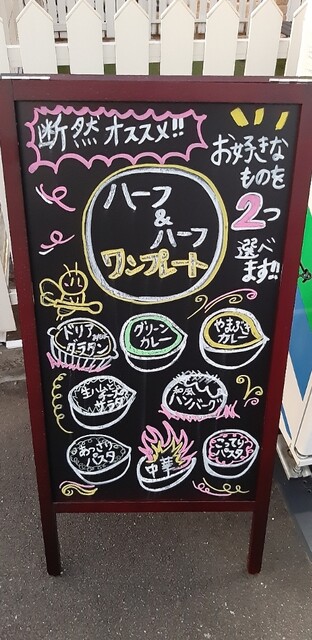 断然オススメ!!
お好きな
ものを
2つ
選べ
ます!!
ハーフ
&
ハーフ
ワンプレート
ドリア
グラタン
グリーン
カレー
やまぶき
カレー
生ハムと
チーズの
サラダ
和風
ハンバーグ
あっさり
パスタ
中華
こってり
パスタ